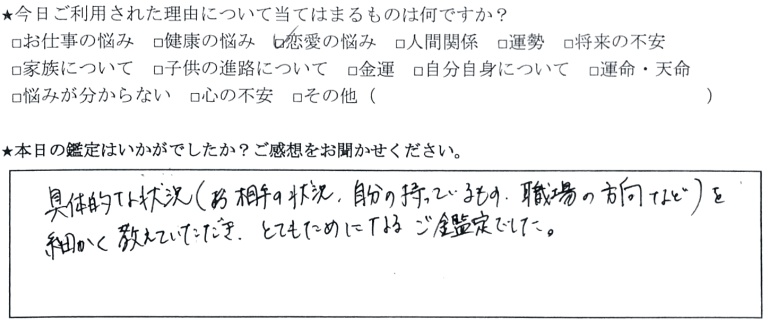 ★今日ご利用された理由について当てはまるものは何ですか？
□お仕事の悩み □健康の悩み ☑恋愛の悩み □人間関係 □運勢 □将来の不安
□家族について □子供の進路について □金運 □自分自身について □運命・天命
□悩みが分からない □心の不安 □その他（ ）
★本日の鑑定はいかがでしたか？ご感想をお聞かせください。
具体的な状況（お相手の状況、自分の持っているもの、職場の方向など）を
細かく教えていただき、とてもためになるご鑑定でした。